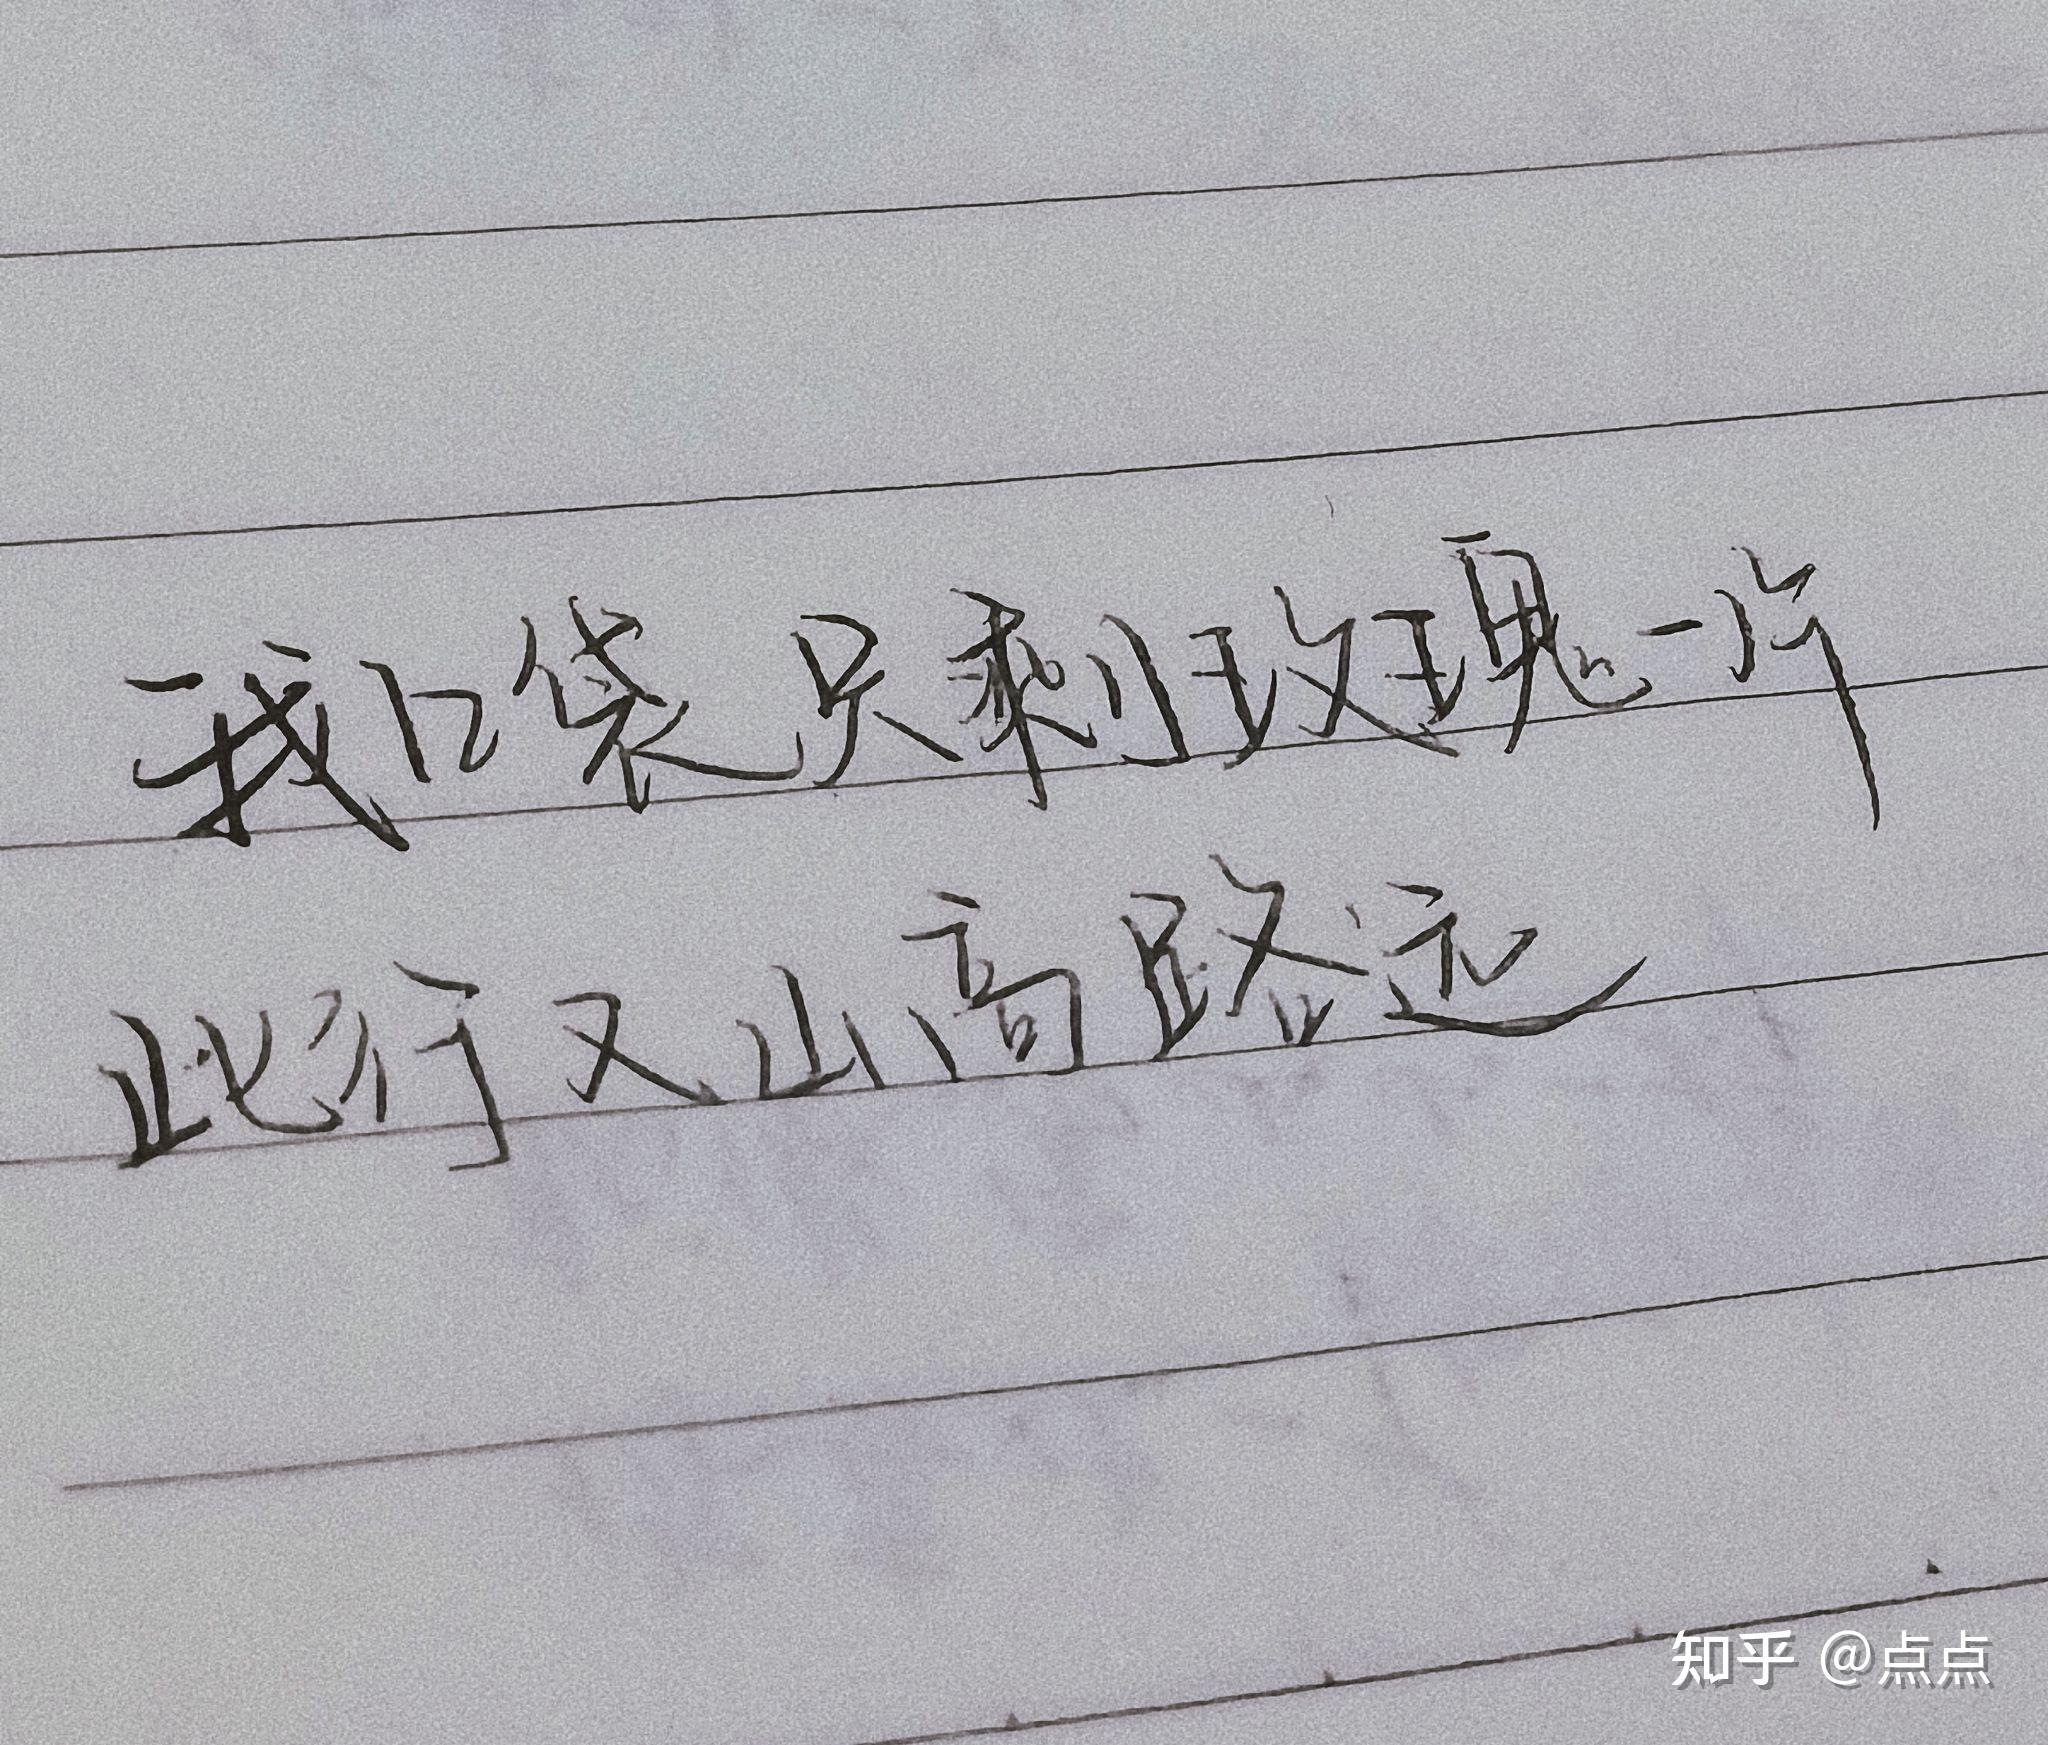 我口袋只剩玫瑰一片
此行又山高路远
知乎 @点点